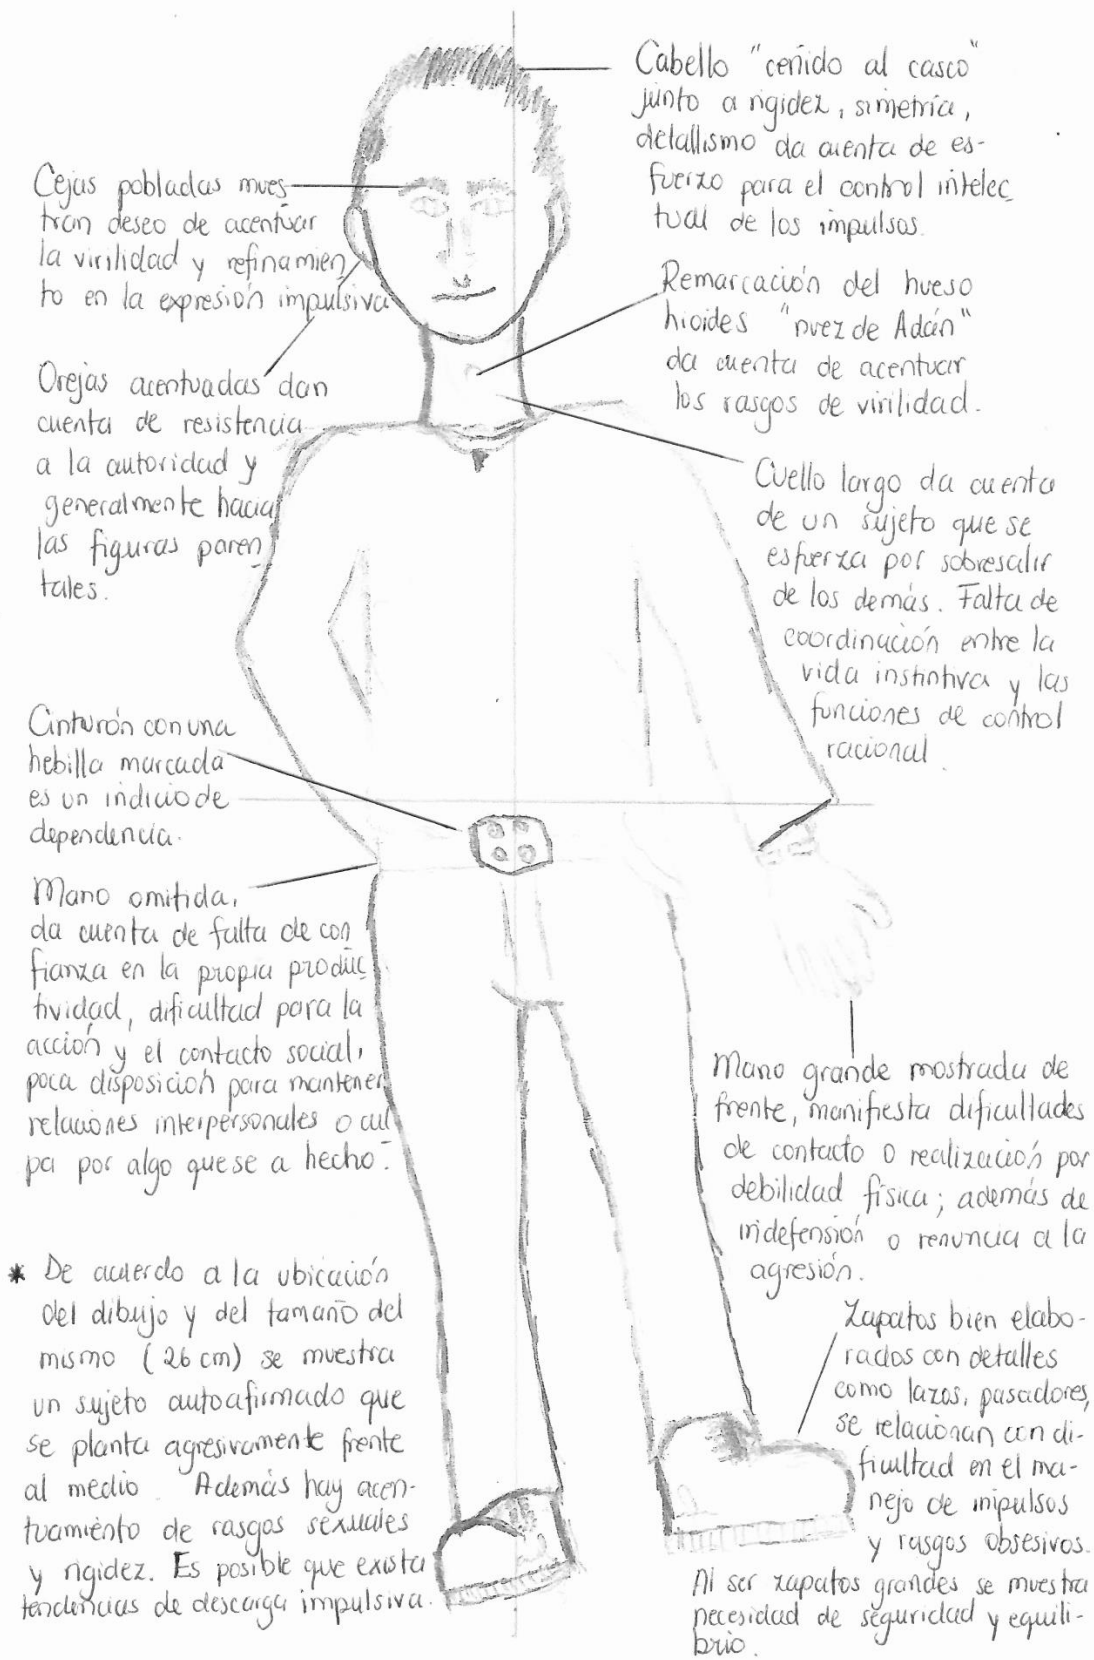 Cabello "ceñido al casco"
junto a rigidez, simetría,
detallismo da cuenta de es-
fuerzo para el control intelec
tual de los impulsos.
Cejas pobladas mues
tran deseo de acentuar
la virilidad y refinamien
to en la expresión impulsiva
Remarcación del hueso
hioides "nuez de Adán"
da cuenta de acentuar
los rasgos de virilidad.
Orejas acentuadas dan
cuenta de resistencia
a la autoridad y
generalmente hacia
las figuras paren
tales.
Cuello largo da cuenta
de un sujeto que se
esfuerza por sobresalir
de los demás. Falta de
coordinación entre la
vida instintiva y las
funciones de control
racional.
Cinturón con una
hebilla marcada
es un indicio de
dependencia.
Mano omitida,
da cuenta de falta de con
fianza en la propia produc
tividad, dificultad para la
acción y el contacto social,
poca disposición para mantener
relaciones interpersonales o cul
pa por algo que se a hecho.
Mano grande mostrada de
frente, manifiesta dificultades
de contacto o realización por
debilidad física; además de
indefensión o renuncia a la
agresión.
* De acuerdo a la ubicación
del dibujo y del tamaño del
mismo (26 cm) se muestra
un sujeto autoafirmado que
se planta agresivamente frente
al medio. Además hay acen-
tuamiento de rasgos sexuales
y rigidez. Es posible que exista
tendencias de descarga impulsiva.
Zapatos bien elabo-
rados con detalles
como lazos, pasadores,
se relacionan con di-
ficultad en el ma-
nejo de impulsos
y rasgos obsesivos.
Al ser zapatos grandes se muestra
necesidad de seguridad y equili-
brio.